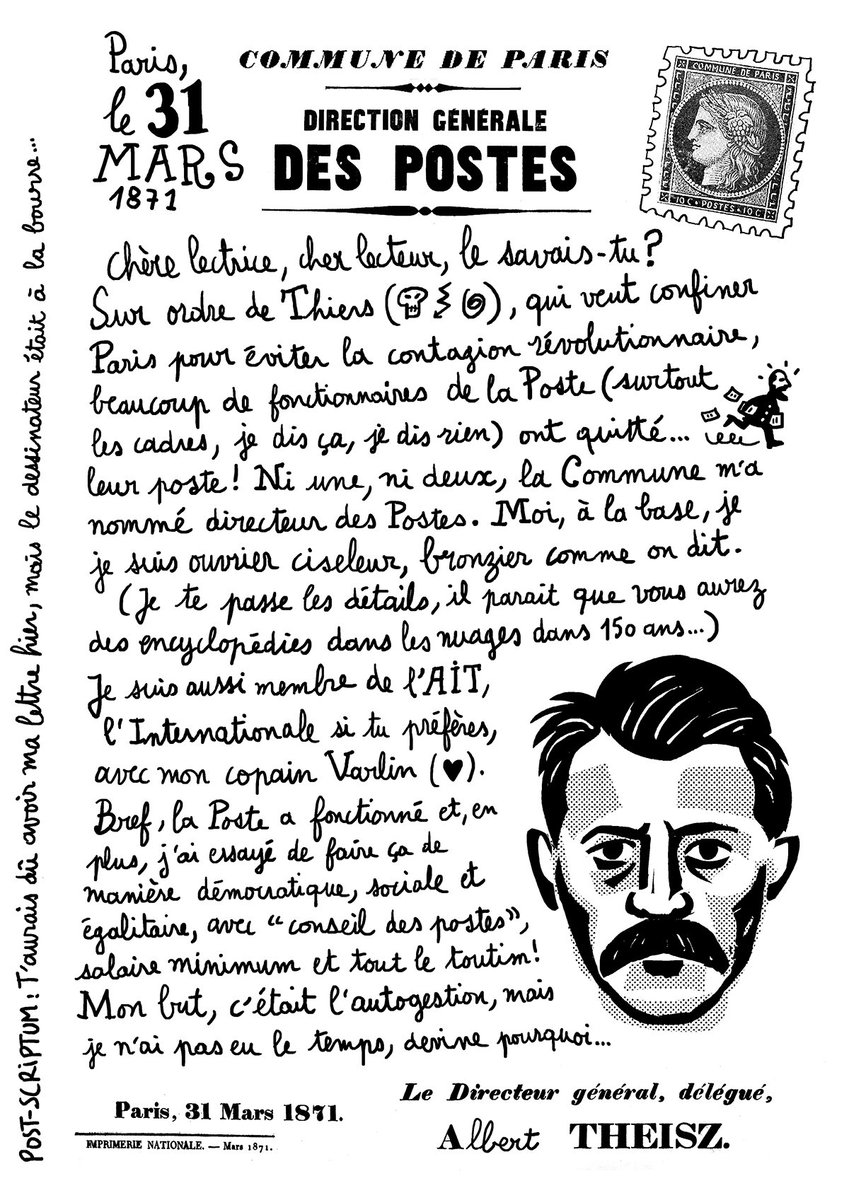 Paris,
le 31
MARS
1871
COMMUNE DE PARIS
DIRECTION GÉNÉRALE
DES POSTES
COMMUNE DE PARIS
10 C • POSTES • 10 C
Chère lectrice, cher lecteur, le savais-tu?
Sur ordre de Thiers (), qui veut confiner
Paris pour éviter la contagion révolutionnaire,
beaucoup de fonctionnaires de la Poste (surtout
les cadres, je dis ça, je dis rien) ont quitté...
leur poste! Ni une, ni deux, la Commune m'a
nommé directeur des Postes. Moi, à la base, je
je suis ouvrier ciseleur, bronzier comme on dit.
(Je te passe les détails, il parait que vous aurez
des encyclopédies dans les nuages dans 150 ans...)
Je suis aussi membre de l'AIT,
l'Internationale si tu préfères,
avec mon copain Varlin (♥).
Bref, la Poste a fonctionné et, en
plus, j'ai essayé de faire ça de
manière démocratique, sociale et
égalitaire, avec "conseil des postes",
salaire minimum et tout le toutim!
Mon but, c'était l'autogestion, mais
je n'ai pas eu le temps, devine pourquoi...
Paris, 31 Mars 1871.
IMPRIMERIE NATIONALE. — Mars 1871.
Le Directeur général, délégué,
Albert THEISZ.
POST-SCRIPTUM: T'aurais dû avoir ma lettre hier, mais le dessinateur était à la bourre...